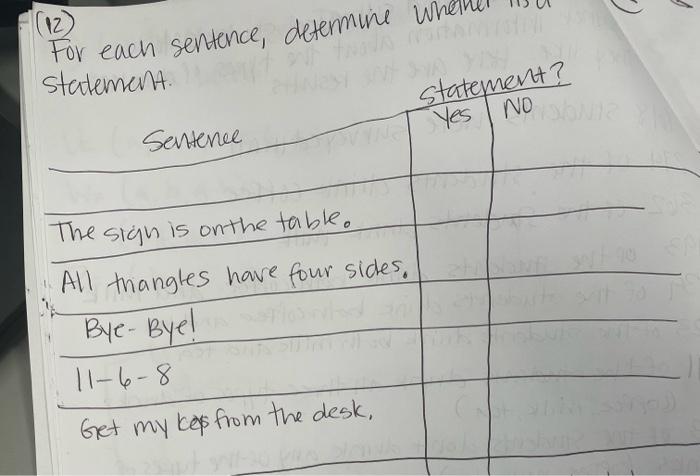 (12)
For each sentence, determine whether it's a
statement.
Statement?
Sentence Yes NO
The sign is on the table.
All triangles have four sides.
Bye-Bye!
11-6-8
Get my keys from the desk.